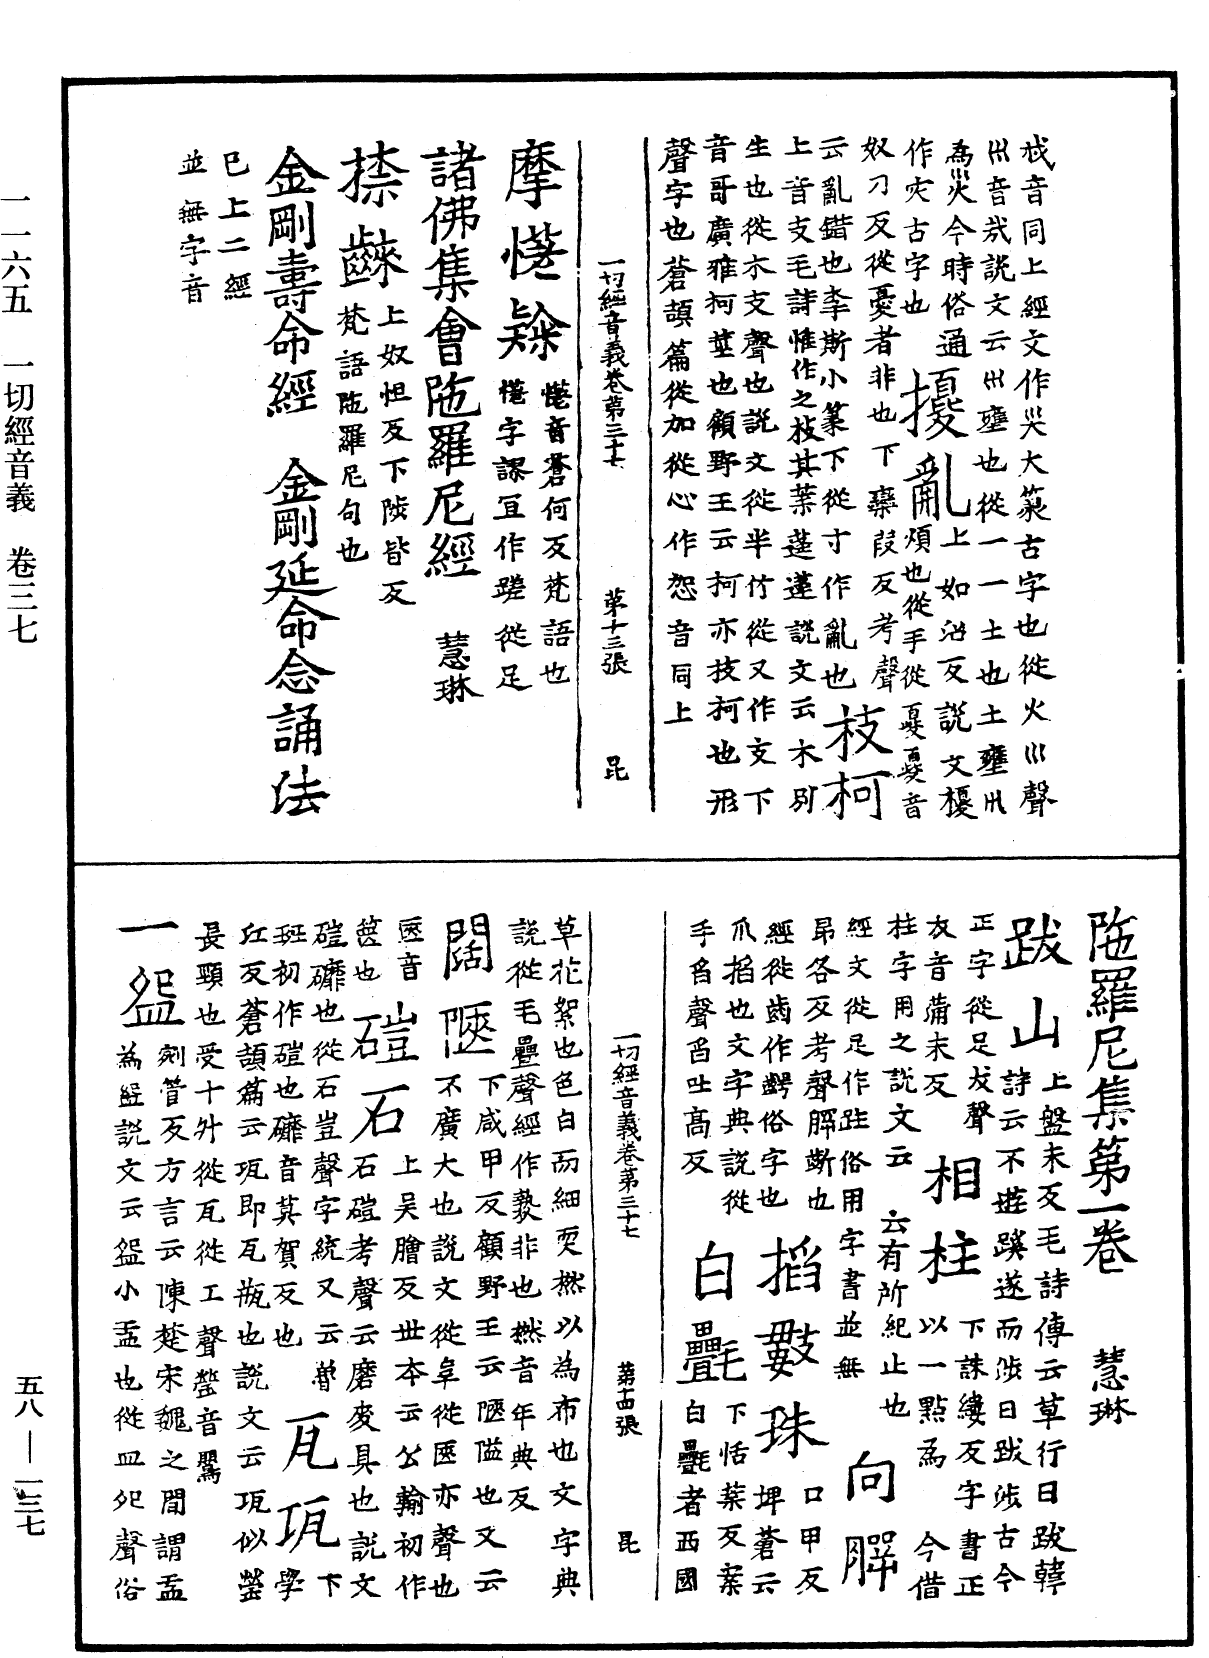 一一六五　一切經音義　卷三七
五八—一三七
烖音同上經文作災大篆古字也從火巛聲
巛音哉說文云巛壅也從一一土也土壅巛
為災今時俗通
作灾古字也
擾亂
上如沼反說文擾
煩也從手從憂憂音
奴刀反從憂者非也下欒段反考聲
云亂錯也李斯小篆下從寸作亂也
枝柯
上音支毛詩惟作之枝其葉蓬蓬說文云木別
生也從木支聲也說文從半竹從又作支下
音哥廣雅柯莖也顧野王云柯亦枝柯也形
聲字也蒼頡篇從加從心作恕音同上
一切經音義卷第三十七　第十三張　昆
摩㦬𨇤
㦬音蒼何反梵語也
㦬字誤宜作蹉從足
諸佛集會陁羅尼經　慧琳
㨆齼
上奴怛反下陟皆反
梵語陁羅尼句也
金剛壽命經　金剛延命念誦法
已上二經
並無字音
陁羅尼集第一卷　慧琳
跋山
上盤末反毛詩傳云草行曰跋韓
詩云不遊蹊遂而涉曰跋涉古今
正字從足犮聲
犮音蒲末反
相柱
下誅縷反字書正
柱字用之說文云
云有所紀止也
以一點為
今借
經文從足作跓俗用字書並無
向腭
昂各反考聲腭齗也
經從齒作齶俗字也
搯數珠
口甲反
埤蒼云
爪搯也文字典說從
手舀聲舀吐高反
白㲲
下恬葉反案
白㲲者西國
一切經音義卷第三十七　第十四張　昆
草花絮也色白而細耎撚以為布也文字典
說從毛疊聲經作㲲非也撚音年典反
闊陿
下咸甲反顧野王云陿隘也文云
不廣大也說文從阜從匧亦聲也
匧音
篋也
磑石
上吳膾反世本云公輸初作
石磑考聲云磨麥具也說文
磑䃺也從石豈聲字統又云魯下
班初作磑也䃺音莫賀反也
瓦㼚
學
江反蒼頡篇云㼚即瓦瓶也說文云㼚似罃
長頸也受十升從瓦從工聲罃音鸎
一㼝
剜管反方言云陳楚宋魏之間謂盂
為㼝說文云㼝小盂也從皿夗聲俗